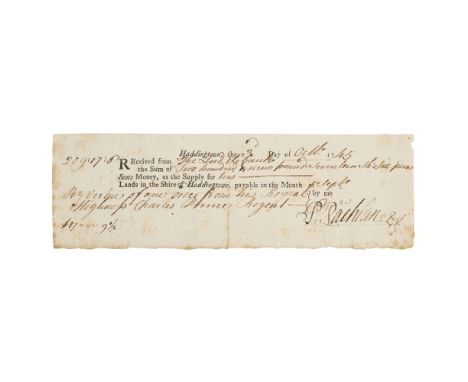 Haddingtoun, the 3d Day of Octbr. 1745
209 „ 17 „ 6 Received from The Lord Elibank
the Sum of Two hundred & nine pound Seventeen Sh: Six pence
Scots Money, as the Supply for his
Lands in the Shire of Haddingtoun, payable in the Month of Septr.
By vertue of ane order from his Royal by me
Highness Charles Prince Regent